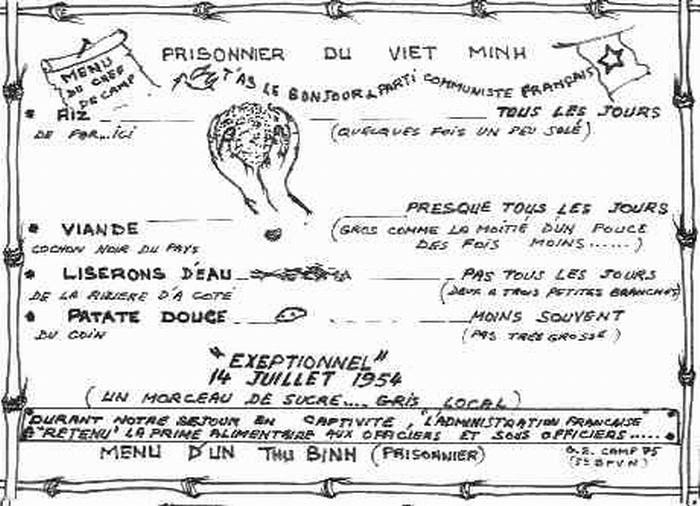 PRISONNIER DU VIET MINH
MENU
DU CHEF
DE CAMP
T'AS LE BONJOUR PARTI COMMUNISTE FRANÇAIS
* RIZ TOUS LES JOURS
DE FOR...ICI (QUELQUES FOIS UN PEU SALÉ)
PRESQUE TOUS LES JOURS
* VIANDE (GROS COMME LA MOITIÉ D'UN POUCE
COCHON NOIR DU PAYS DES FOIS MOINS......)
* LISERONS D'EAU PAS TOUS LES JOURS
DE LA RIZIERE D'A COTÉ (DEUX A TROIS PETITES BRANCHES)
* PATATE DOUCE MOINS SOUVENT
DU COIN (PAS TRES GROSSE)
"EXEPTIONNEL"
14 JUILLET 1954
(UN MORCEAU DE SUCRE.... GRIS LOCAL)
DURANT NOTRE SEJOUR EN CAPTIVITÉ, L'ADMINISTRATION FRANCAISE
A "RETENU" LA PRIME ALIMENTAIRE AUX OFFICIERS ET SOUS OFFICIERS.....
MENU D'UN THU BINH (PRISONNIER)
CAMP 75
(5e BPVN)